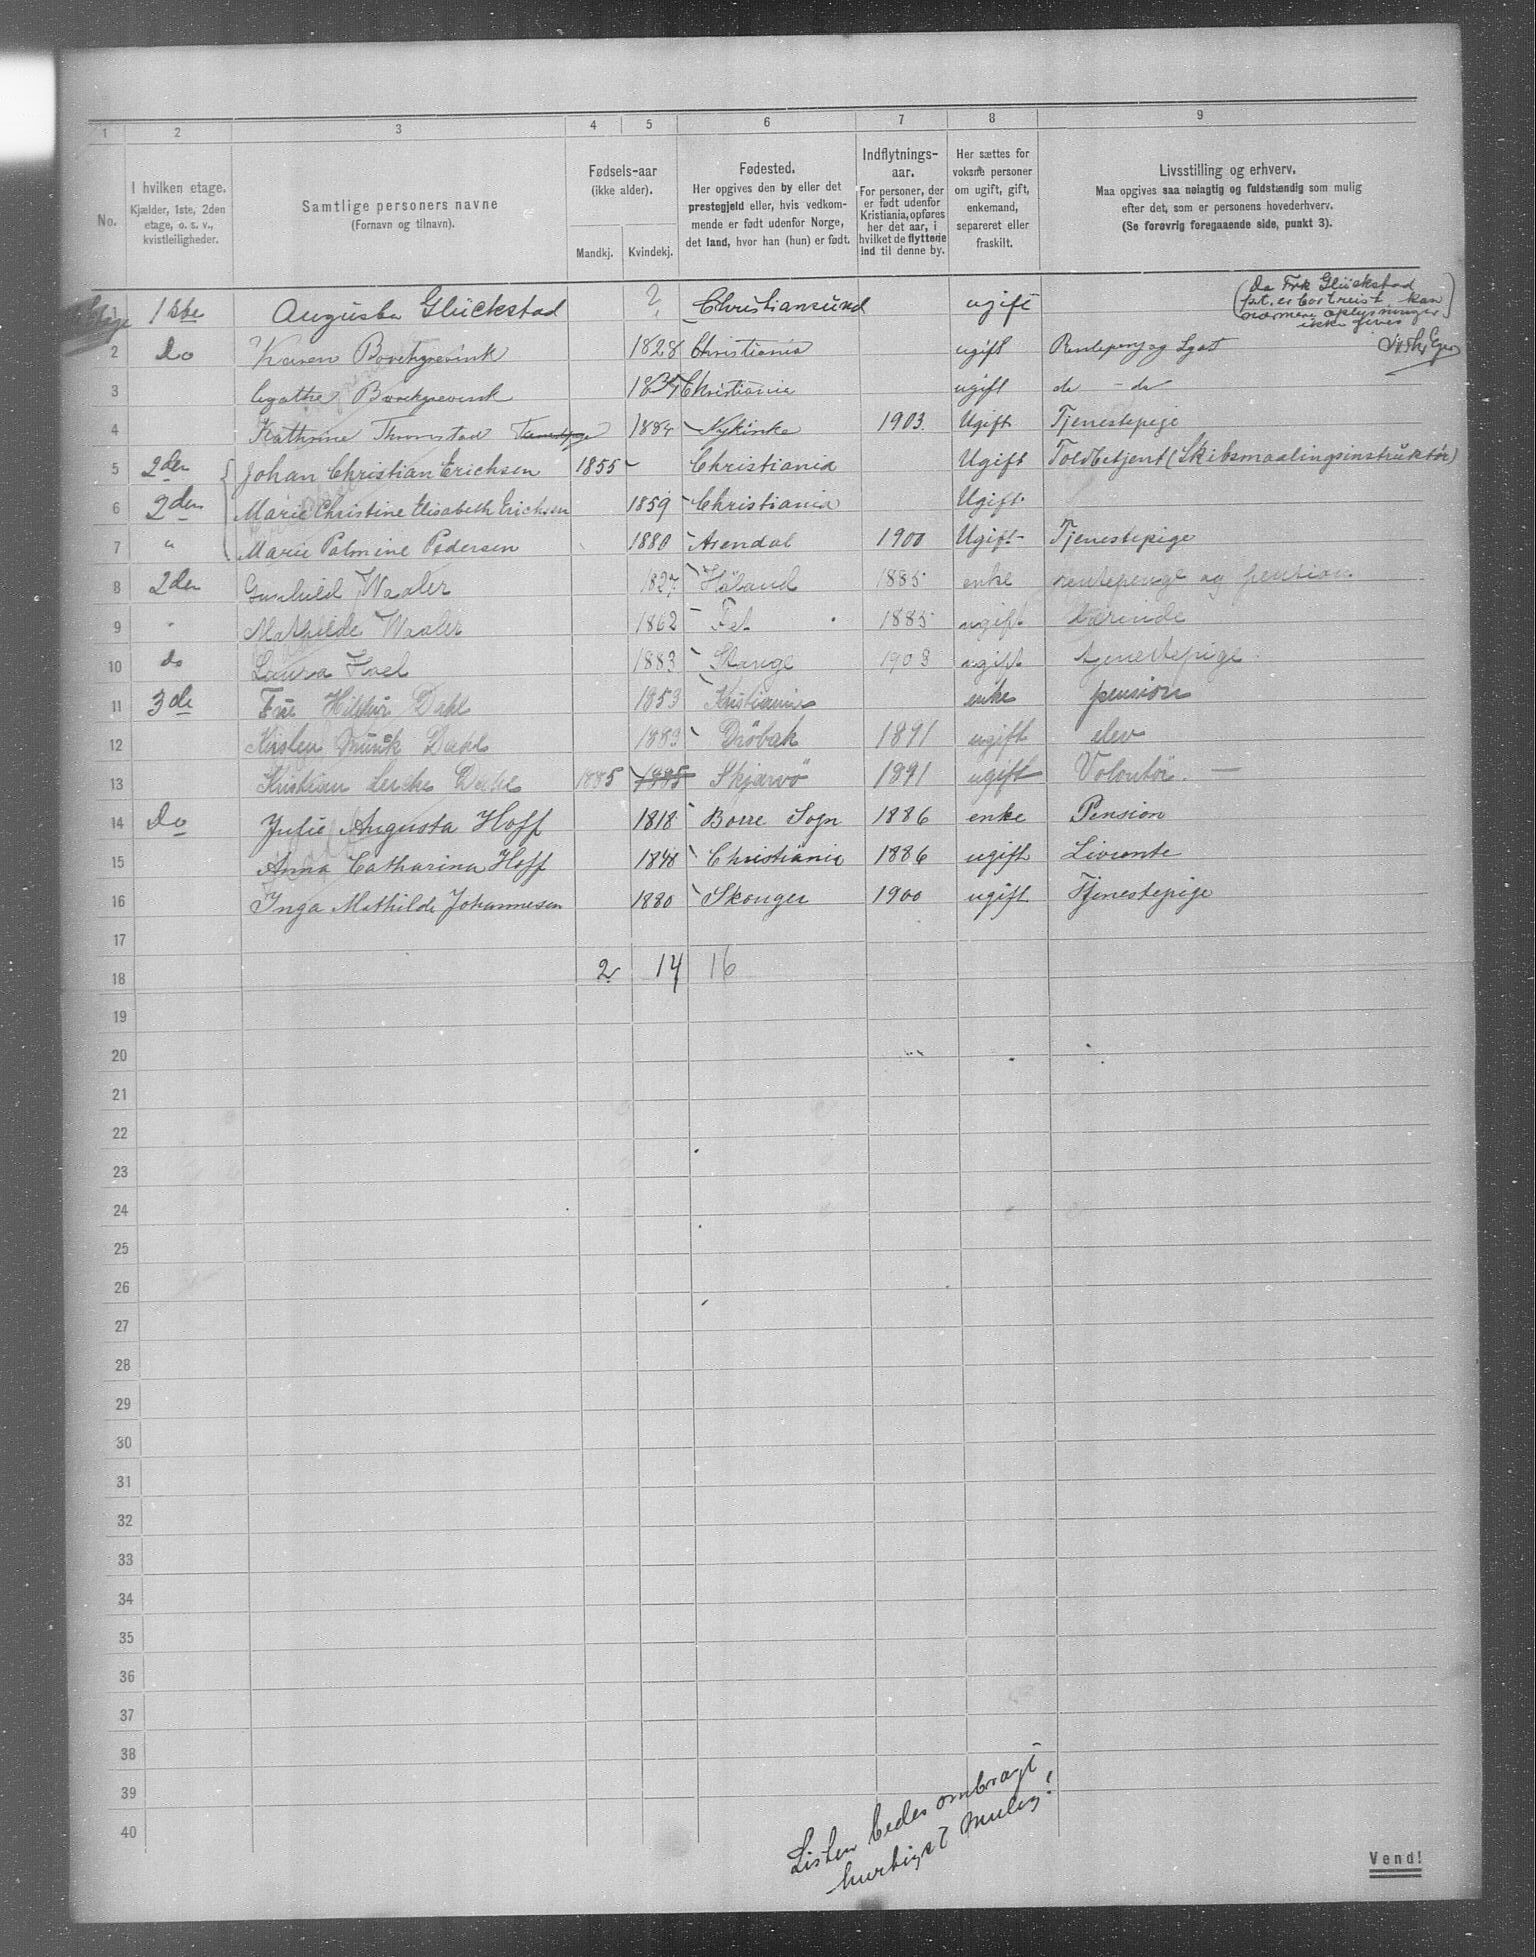 1 2 3 4 5 6 7 8 9
No.
I hvilken etage.
Kjælder, 1ste, 2den
etage, o. s. v.,
kvistleiligheder.
Samtlige personers navne
(Fornavn og tilnavn).
Fødsels-aar
(ikke alder).
Mandkj. Kvindekj.
Fødested.
Her opgives den by eller det
prestegjeld eller, hvis vedkom-
mende er født udenfor Norge,
det land, hvor han (hun) er født.
Indflytnings-
aar.
For personer, der
er født udenfor
Kristiania, opføres
her det aar, i
hvilket de flyttede
ind til denne by.
Her sættes for
voksne personer
om ugift, gift,
enkemand,
separeret eller
fraskilt.
Livsstilling og erhverv.
Maa opgives saa nøiagtig og fuldstændig som mulig
efter det, som er personens hovederhverv.
(Se forøvrig foregaaende side, punkt 3).
1 1ste Augusta Glückstad ? Christiansund ugift
(Da Frk Glückstad
fat. er bortreist, kan
nærmere oplysninger
ikke gives)
2 Do Karen Borchgrevink 1828 Christiania ugift Rentepeng og Lgat
3 Agathe Borchgrevink Christiania ugift do - do
4 Kathrine Thronstad 1884 Nykirke 1903. Ugift Tjenestepige
5 2den Johan Christian Erichsen 1855 Christiania Ugift Toldbetjent (Skibsmaalingsinstruktør)
6 2den Marie Christine Elisabeth Erichsen 1859 Christiania Ugift
7 " Marie Palmine Pedersen 1880 Arendal 1900 Ugift Tjenestepige
8 2den Gunhild Waaler 1827 Høland 1885 enke rentepenge og pention
9 " Mathilde Waaler 1862 Fet 1885 ugift Lærinde
10 do Laura Hoel 1883 Stange 1903 ugift tjenestepige
11 3de Fru Dahl 1853 Kristiania enke pension
12 Kirsten Munk Dahl 1883 Drøbak 1891 ugift elev
13 Kristian Lerche Dahl 1885 1885 Skjærvø 1891 ugift Volontør
14 Do Julie Augusta Hoff 1818 Borre Sogn 1886 enke Pension
15 Anna Catharina Hoff 1848 Christiania 1886 ugift Livrente
16 Inga Mathilde Johannesen 1880 Skouger 1900 ugift Tjenestepige
17
18 2 14 16
19
20
21
22
23
24
25
26
27
28
29
30
31
32
33
34
35
36
37
38
39
40
Listen bedes ombragt
hurtigst mulig!
Vend!